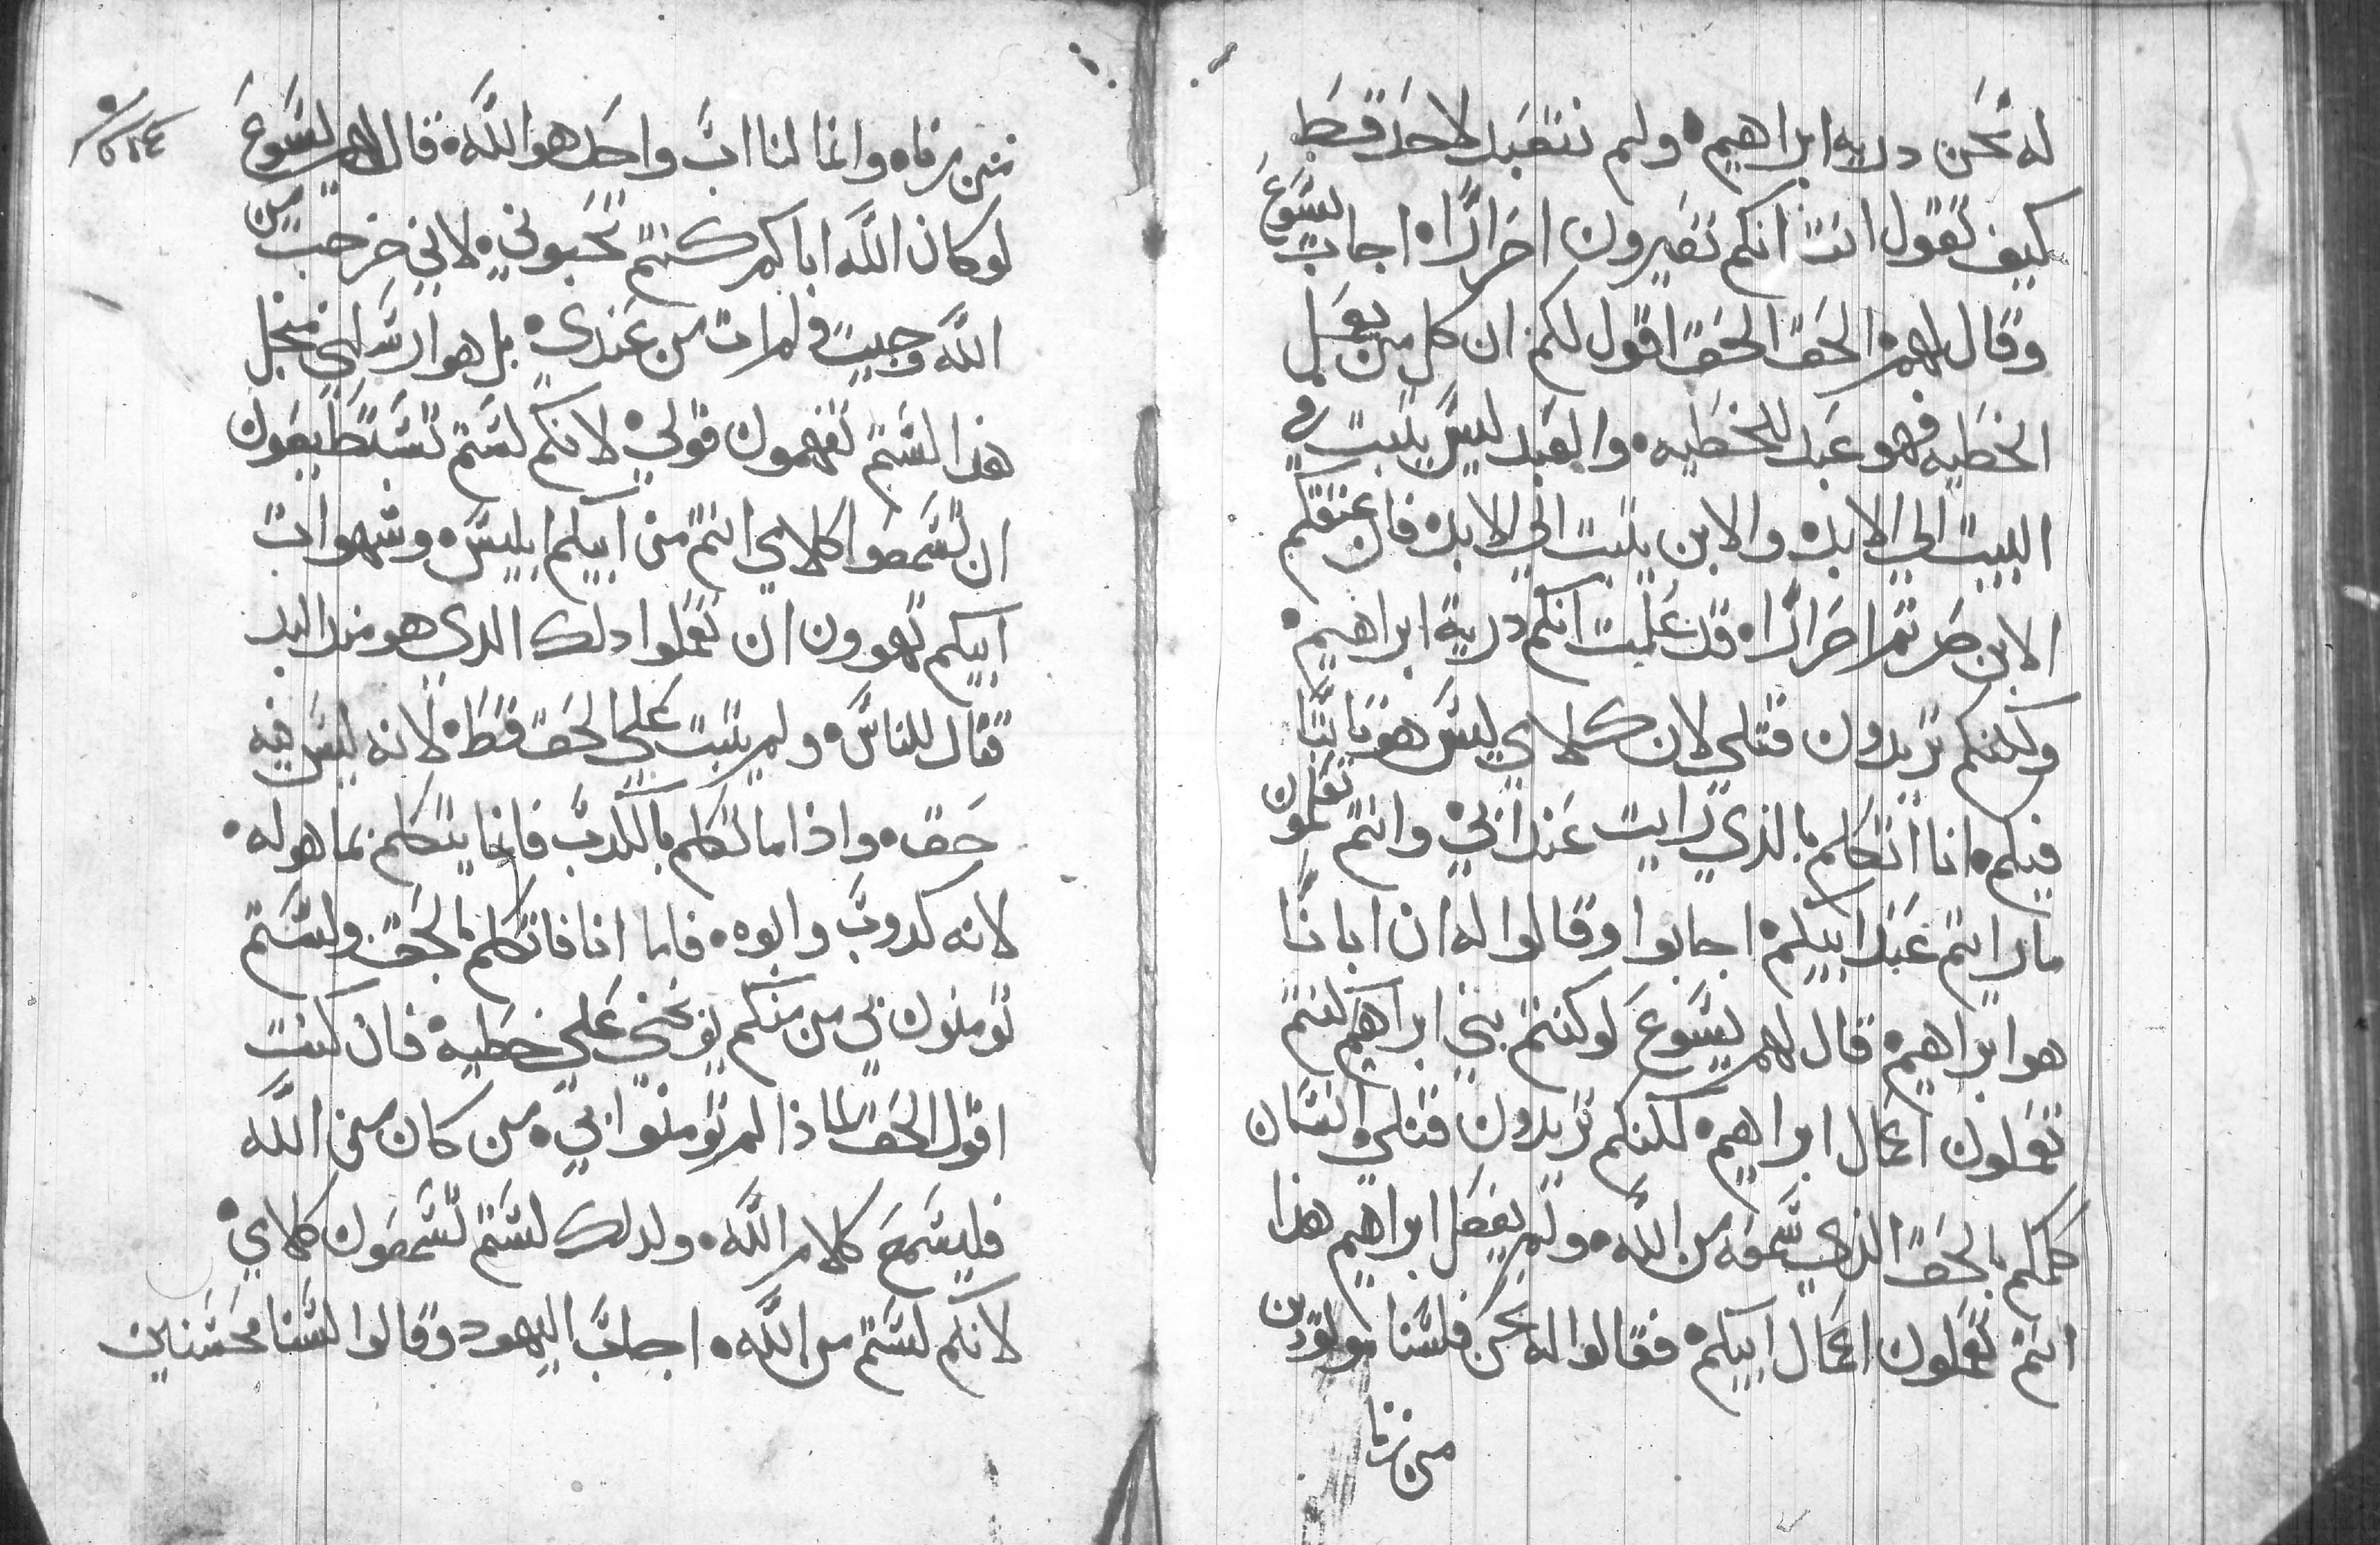 له نحن درية ابراهيم • ولم نتعبد لاحد قط
كيف تقول انت انكم تصيرون احرارًا • اجاب يسوع
وقال لهم • الحق الحق اقول لكم ان كل من يعمل
الخطيه فهو عبد للخطيه • والعبد ليس يثبت في
البيت الي الابد • والابن يثبت الي الابد • فان عتقكم
الابن صرتم احرارًا • قد علمت انكم درية ابراهيم •
ولكنكم تريدون قتلي لان كلامي ليس هو ثابتًا
فيكم • انا اتكلم بالذي رايت عند ابي • وانتم تعملون
ما رايتم عند ابيكم • اجابوا وقالوا له ان ابانا
هو ابراهيم • قال لهم يسوع لو كنتم بني ابراهيم كنتم
تعملون اعمال ابراهيم • لكنكم تريدون قتلي • انسان
كلمكم بالحق الذي سمعه من الله • ولم يفعل ابراهيم هذا
انتم تعملون اعمال ابيكم • فقالوا له نحن فلسنا مولودين
من زنا
من زنا • وانما لنا اب واحد هو الله • قال لهم يسوع
لو كان الله اباكم كنتم تحبوني • لاني خرجت من
الله وجيت • ولم ات من عندي • بل هو ارسلني • منجل
هذا لستم تفهمون قولي • لانكم لستم تستطيعون
ان تسمعوا كلامي انتم من ابيكم ابليس • وشهوات
ابيكم تهوون ان تعملوا دلك الدي هو مند البد
قتال للناس • ولم يثبت علي الحق قط • لانه ليس فيه
حق • واذا ما تكلم بالكدب فانما يتكلم بما هو له •
لانه كدوب وابوه • فاما انا فاتكلم بالحق • ولستم
تومنون بي من منكم يوبخني علي خطيه • فان كنت
اقول الحق لماذا لم تومنوا بي • من كان من الله
فليسمع كلام الله • ولدلك لستم تسمعون كلامي •
لانكم لستم من الله • اجاب اليهود وقالوا السنا محسنين